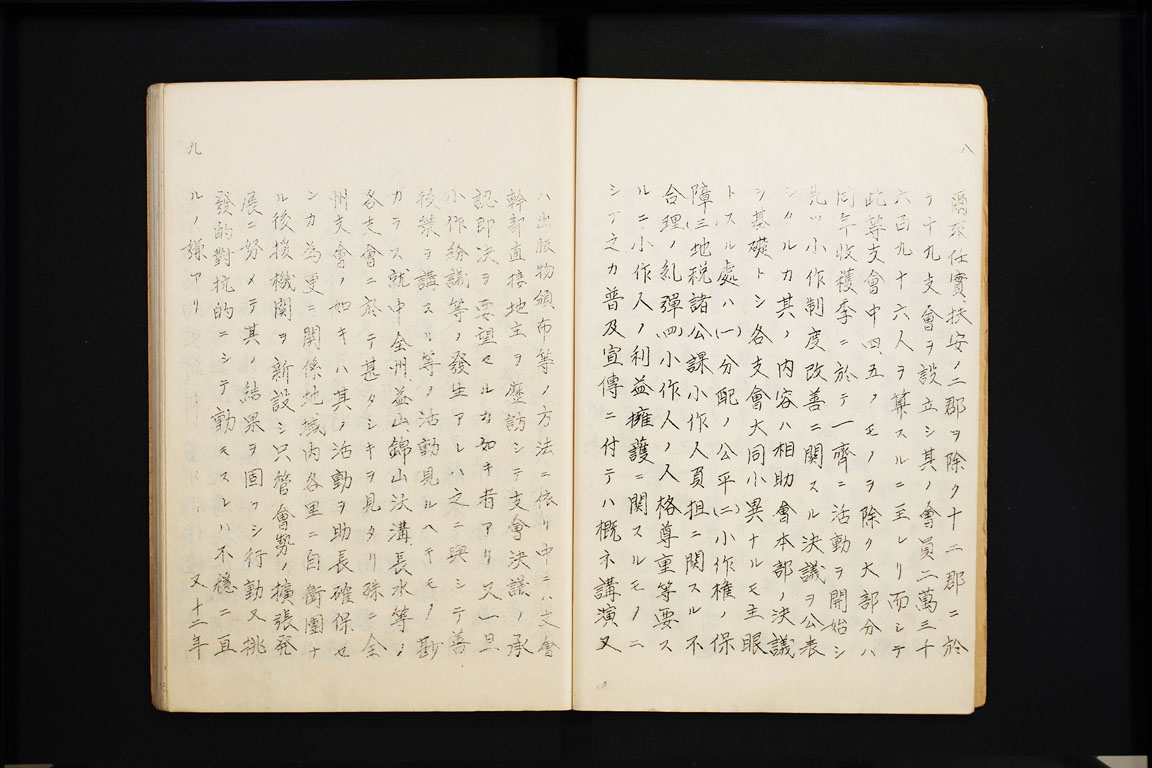 八
爾來任實扶安ノ二郡ヲ除ク十二郡ニ於
テ十九支會ヲ設立シ其ノ會員二萬三千
六百九十六人ヲ算スルニ至レリ而シテ
此等支會中四、五ノモノヲ除ク大部分ハ
同年收穫季ニ於テ一齊ニ活動ヲ開始シ
先ツ小作制度改善ニ關スル決議ヲ公表
シタルカ其ノ內容ハ相助會本部ノ決議
ヲ基礎トシ各支會大同小異ナルモ主眼
トスル處ハ(一)分配ノ公平(二)小作權ノ保
障(三)地稅諸公課小作人負担ニ關スル不
合理ノ糺彈(四)小作人ノ人格尊重等要ス
ルニ小作人ノ利益擁護ニ關スルモノニ
シテ之カ普及宣傳ニ付テハ概ネ講演又
九
ハ出版物頒布等ノ方法ニ依リ中ニハ支會
幹部直接地主ヲ歷訪シテ支會決議ノ承
認卽決ヲ要望セルカ如キ者アリ又一旦
小作紛議等ノ發生アレハ之ニ興シテ善
後策ヲ講スル等ノ活動見ルヘキモノ尠
カラス就中全州、益山、錦山、沃溝、長水等ノ
各支會ニ於テ甚タシキヲ見タリ殊ニ全
州支會ノ如キハ其ノ活動ヲ助長確保セ
ンカ為更ニ關係地域內各里ニ自衛團ナ
ル後援機關ヲ新設シ只管會勢ノ擴張發
展ニ努メテ其ノ結果ヲ固フシ行動又挑
發的對抗的ニシテ動モスレハ不穩ニ亘
ルノ嫌アリ 又十三年